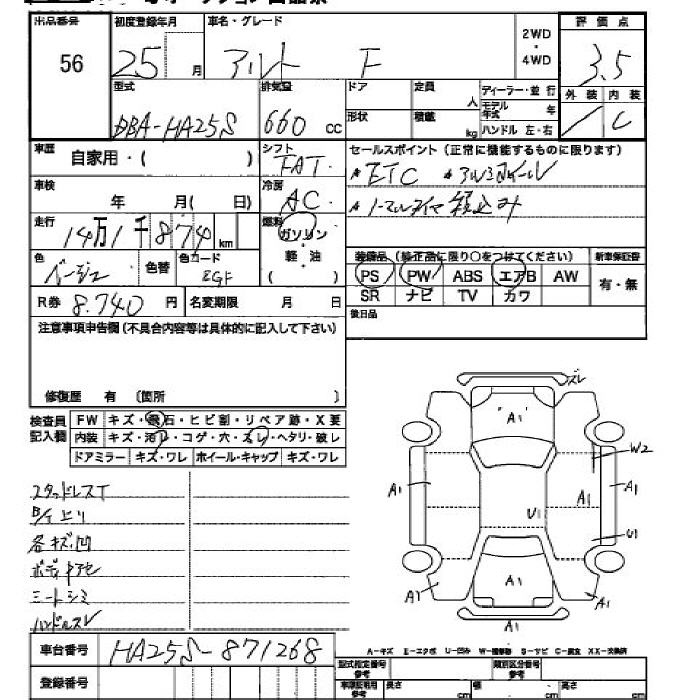 出品番号 初度登録年月 車名・グレード 2WD・4WD 評価点
56 25 月 アルト F 3.5
型式 排気量 ドア 定員 人 ディーラー・並行 外装 内装
DBA-HA25S 660 cc 形状 積載 kg モデル年式 年 C
ハンドル 左・右
車歴 自家用・( ) シフト FAT セールスポイント(正常に機能するものに限ります)
車検 年 月( 日) 冷房 AC ETC アルミホイール
ノーマルタイヤ積込み
走行 14万1千874km 燃料 ガソリン・軽油 ( )
色 ベージュ 色替 色カード ZGF 装備品(純正品に限り○をつけてください) 新車保証書
PS PW ABS エアB AW 有・無
R券 8.740 円 名変期限 月 日 SR ナビ TV カワ
注意事項申告欄(不具合内容等は具体的に記入して下さい) 後日品
修復歴 有 〔箇所 〕
検査員記入欄 FW キズ・飛石・ヒビ割・リペア跡・X要
内装 キズ・汚レ・コゲ・穴・スレ・ヘタリ・破レ
ドアミラー キズ・ワレ ホイール・キャップ キズ・ワレ
ズレ
A1
W2
A1 A1 A1
U1 U1
A1
A1 A1
A1
スタッドレスT
各キズ凹
ボディ
シートシミ
ハンドルスレ
A-キズ E-エクボ U-凹み W-補修跡 S-サビ C-腐食 XX-交換済
車台番号 HA25S-871268
登録番号 型式指定番号 参考 類別区分番号 参考
参考 長さ cm 幅 cm 高さ cm